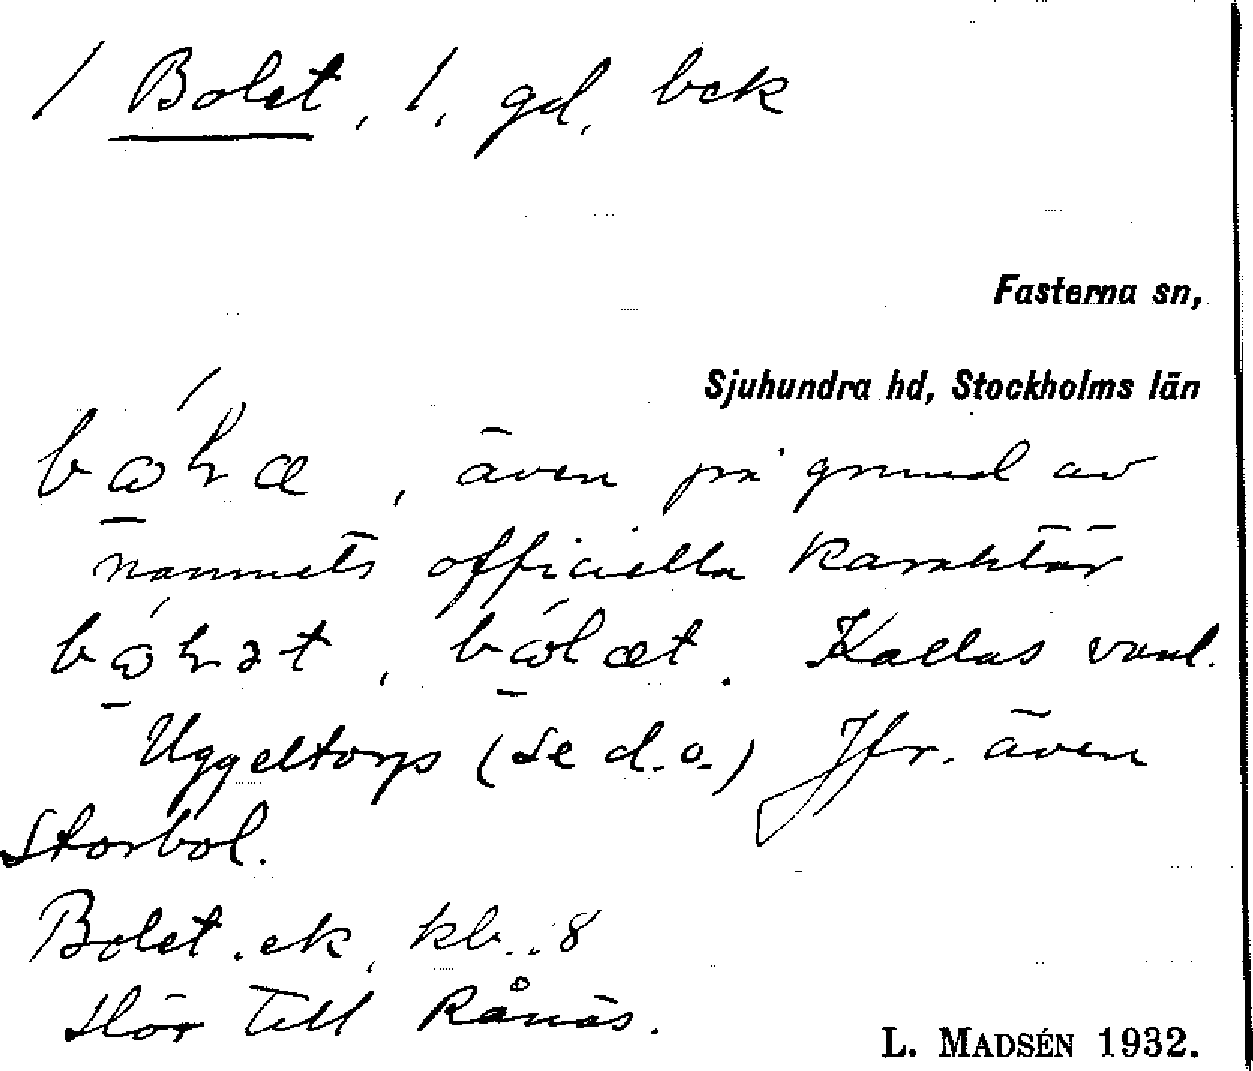 / Bolet, 1, gd, bek
Fasterna sn,
Sjuhundra hd, Stockholms län
även på grund av
namnets officiella karaktär
Kallas vanl.
Uggeltorp (se d.o.) Jfr. även
Storbol.
Bolet. ek, kb.. 8
Hör till Rånäs.
L. MADSÉN 1932.